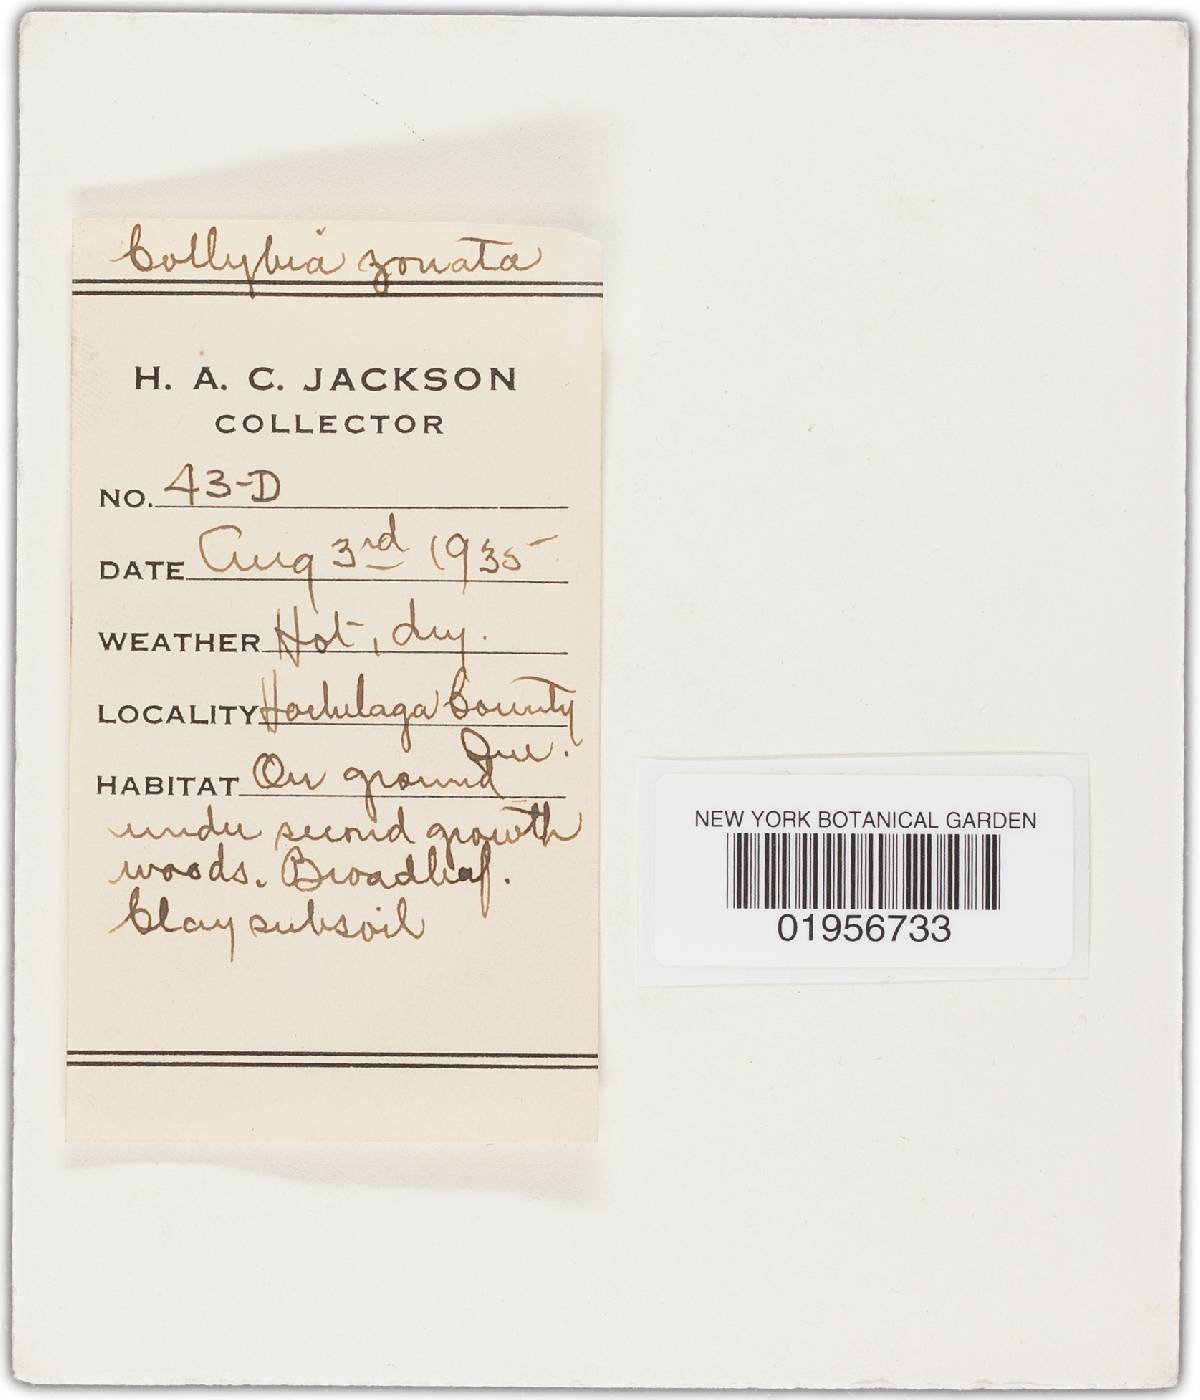 Collybia zonata
H. A. C. JACKSON
COLLECTOR
NO. 43-D
DATE Aug 3rd 1935
WEATHER Hot, dry.
LOCALITY Hochelaga County
Que.
HABITAT On ground
under second growth
woods. Broadleaf.
Clay subsoil
NEW YORK BOTANICAL GARDEN
01956733